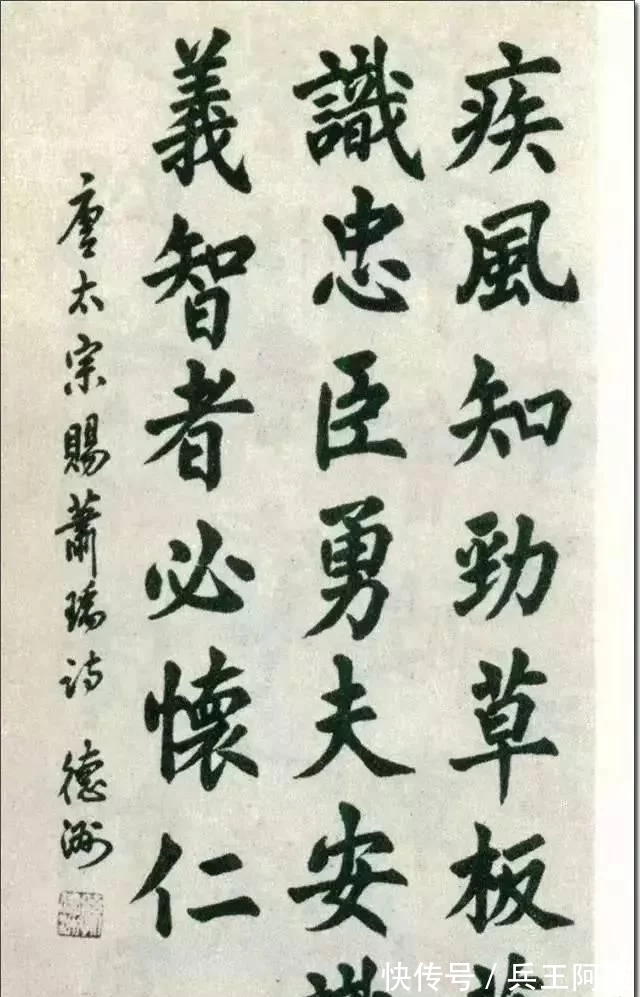 疾風知勁草板
識忠臣勇夫安
義智者必懷仁
唐太宗賜蕭瑀诗 德洲
快传号/兵王阿